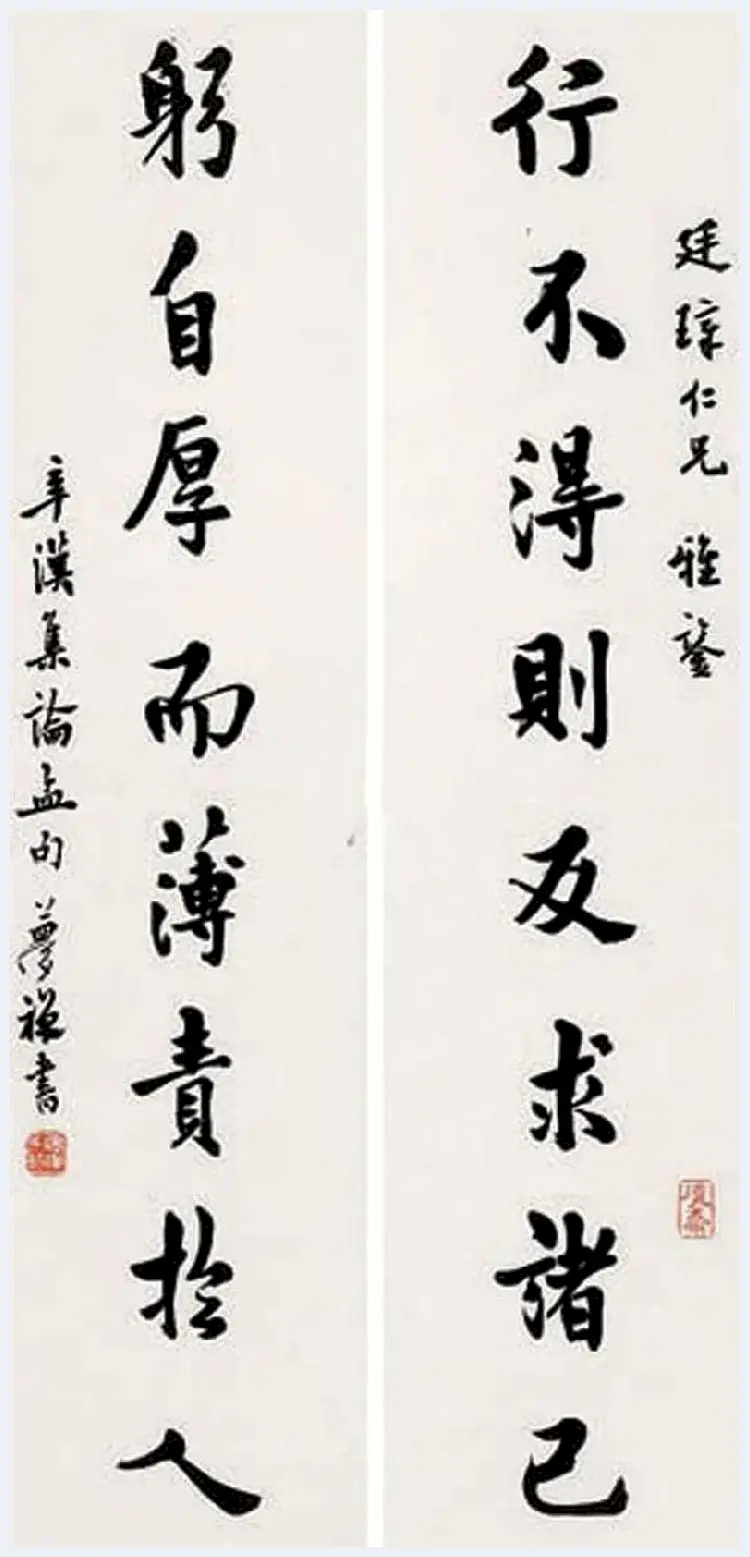 廷璋仁兄 雅鑒
行不得則反求諸己
躬自厚而薄責於人
辛漢集論孟句 夢禪書